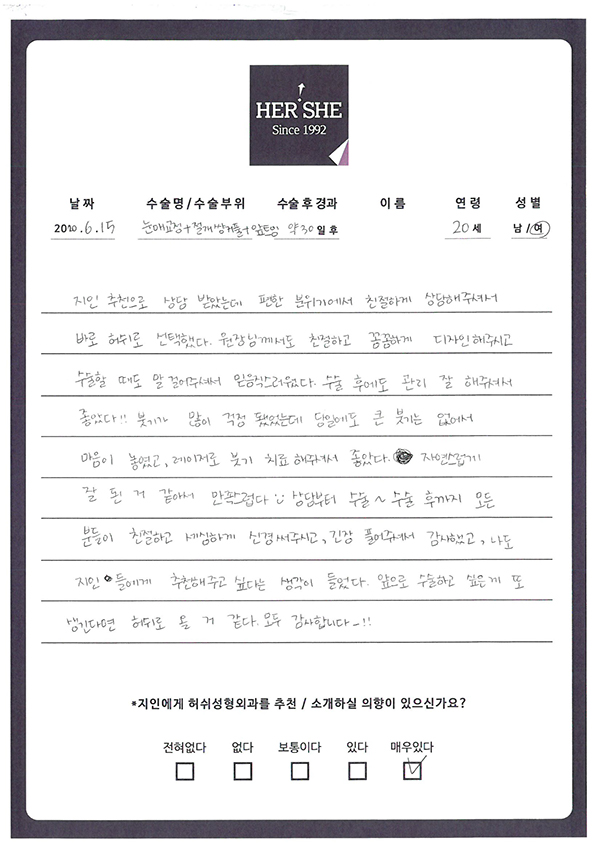 HER SHE
Since 1992
날짜 수술명/수술부위 수술후경과 이름 연령 성별
2020.6.15 눈매교정+절개쌍커풀+앞트임 약30일 후 20세 남/여
지인 추천으로 상담 받았는데 편한 분위기에서 친절하게 상담해주셔서
바로 허쉬로 선택했다. 원장님께서도 친절하고 꼼꼼하게 디자인해주시고
수술할 때도 말 걸어주셔서 믿음직스러웠다. 수술 후에도 관리 잘 해주셔서
좋았다!! 붓기가 많이 걱정 됐었는데 당일에도 큰 붓기는 없어서
마음이 놓였고, 레이저로 붓기 치료해주셔서 좋았다. 자연스럽게
잘 된 거 같아서 만족스럽다 상담부터 수술 ~ 수술 후까지 모든
분들이 친절하고 세심하게 신경써주시고, 긴장 풀어주셔서 감사했고, 나도
지인들에게 추천해주고 싶다는 생각이 들었다. 앞으로 수술하고 싶은게 또
생긴다면 허쉬로 올 거 같다. 모두 감사합니다-!!
*지인에게 허쉬성형외과를 추천 / 소개하실 의향이 있으신가요?
전혀없다 없다 보통이다 있다 매우있다